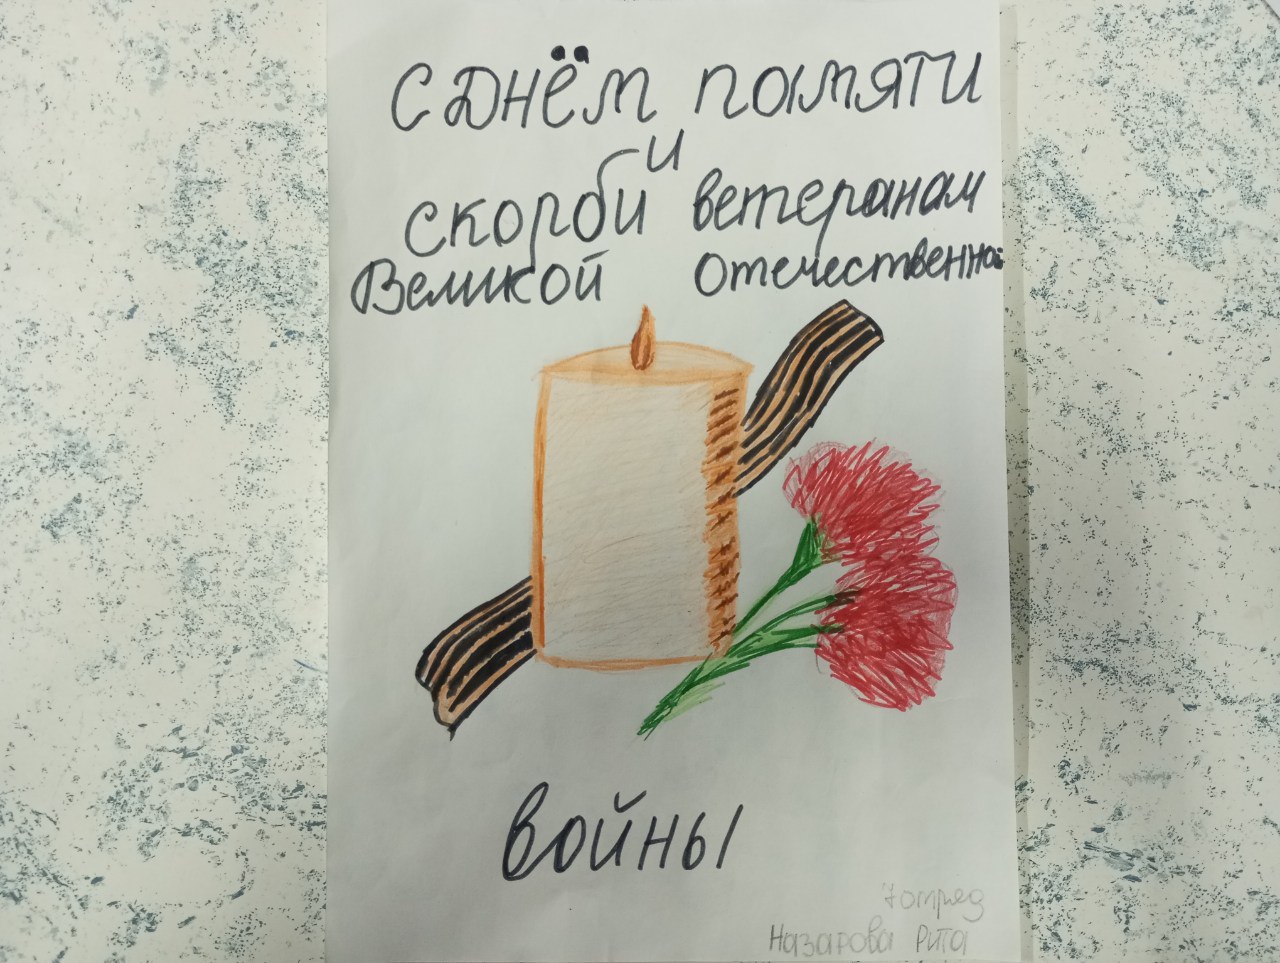 С Днём памяти
и
скорби ветеранам
Великой Отечественной
войны
7 отряд
Назарова Рита